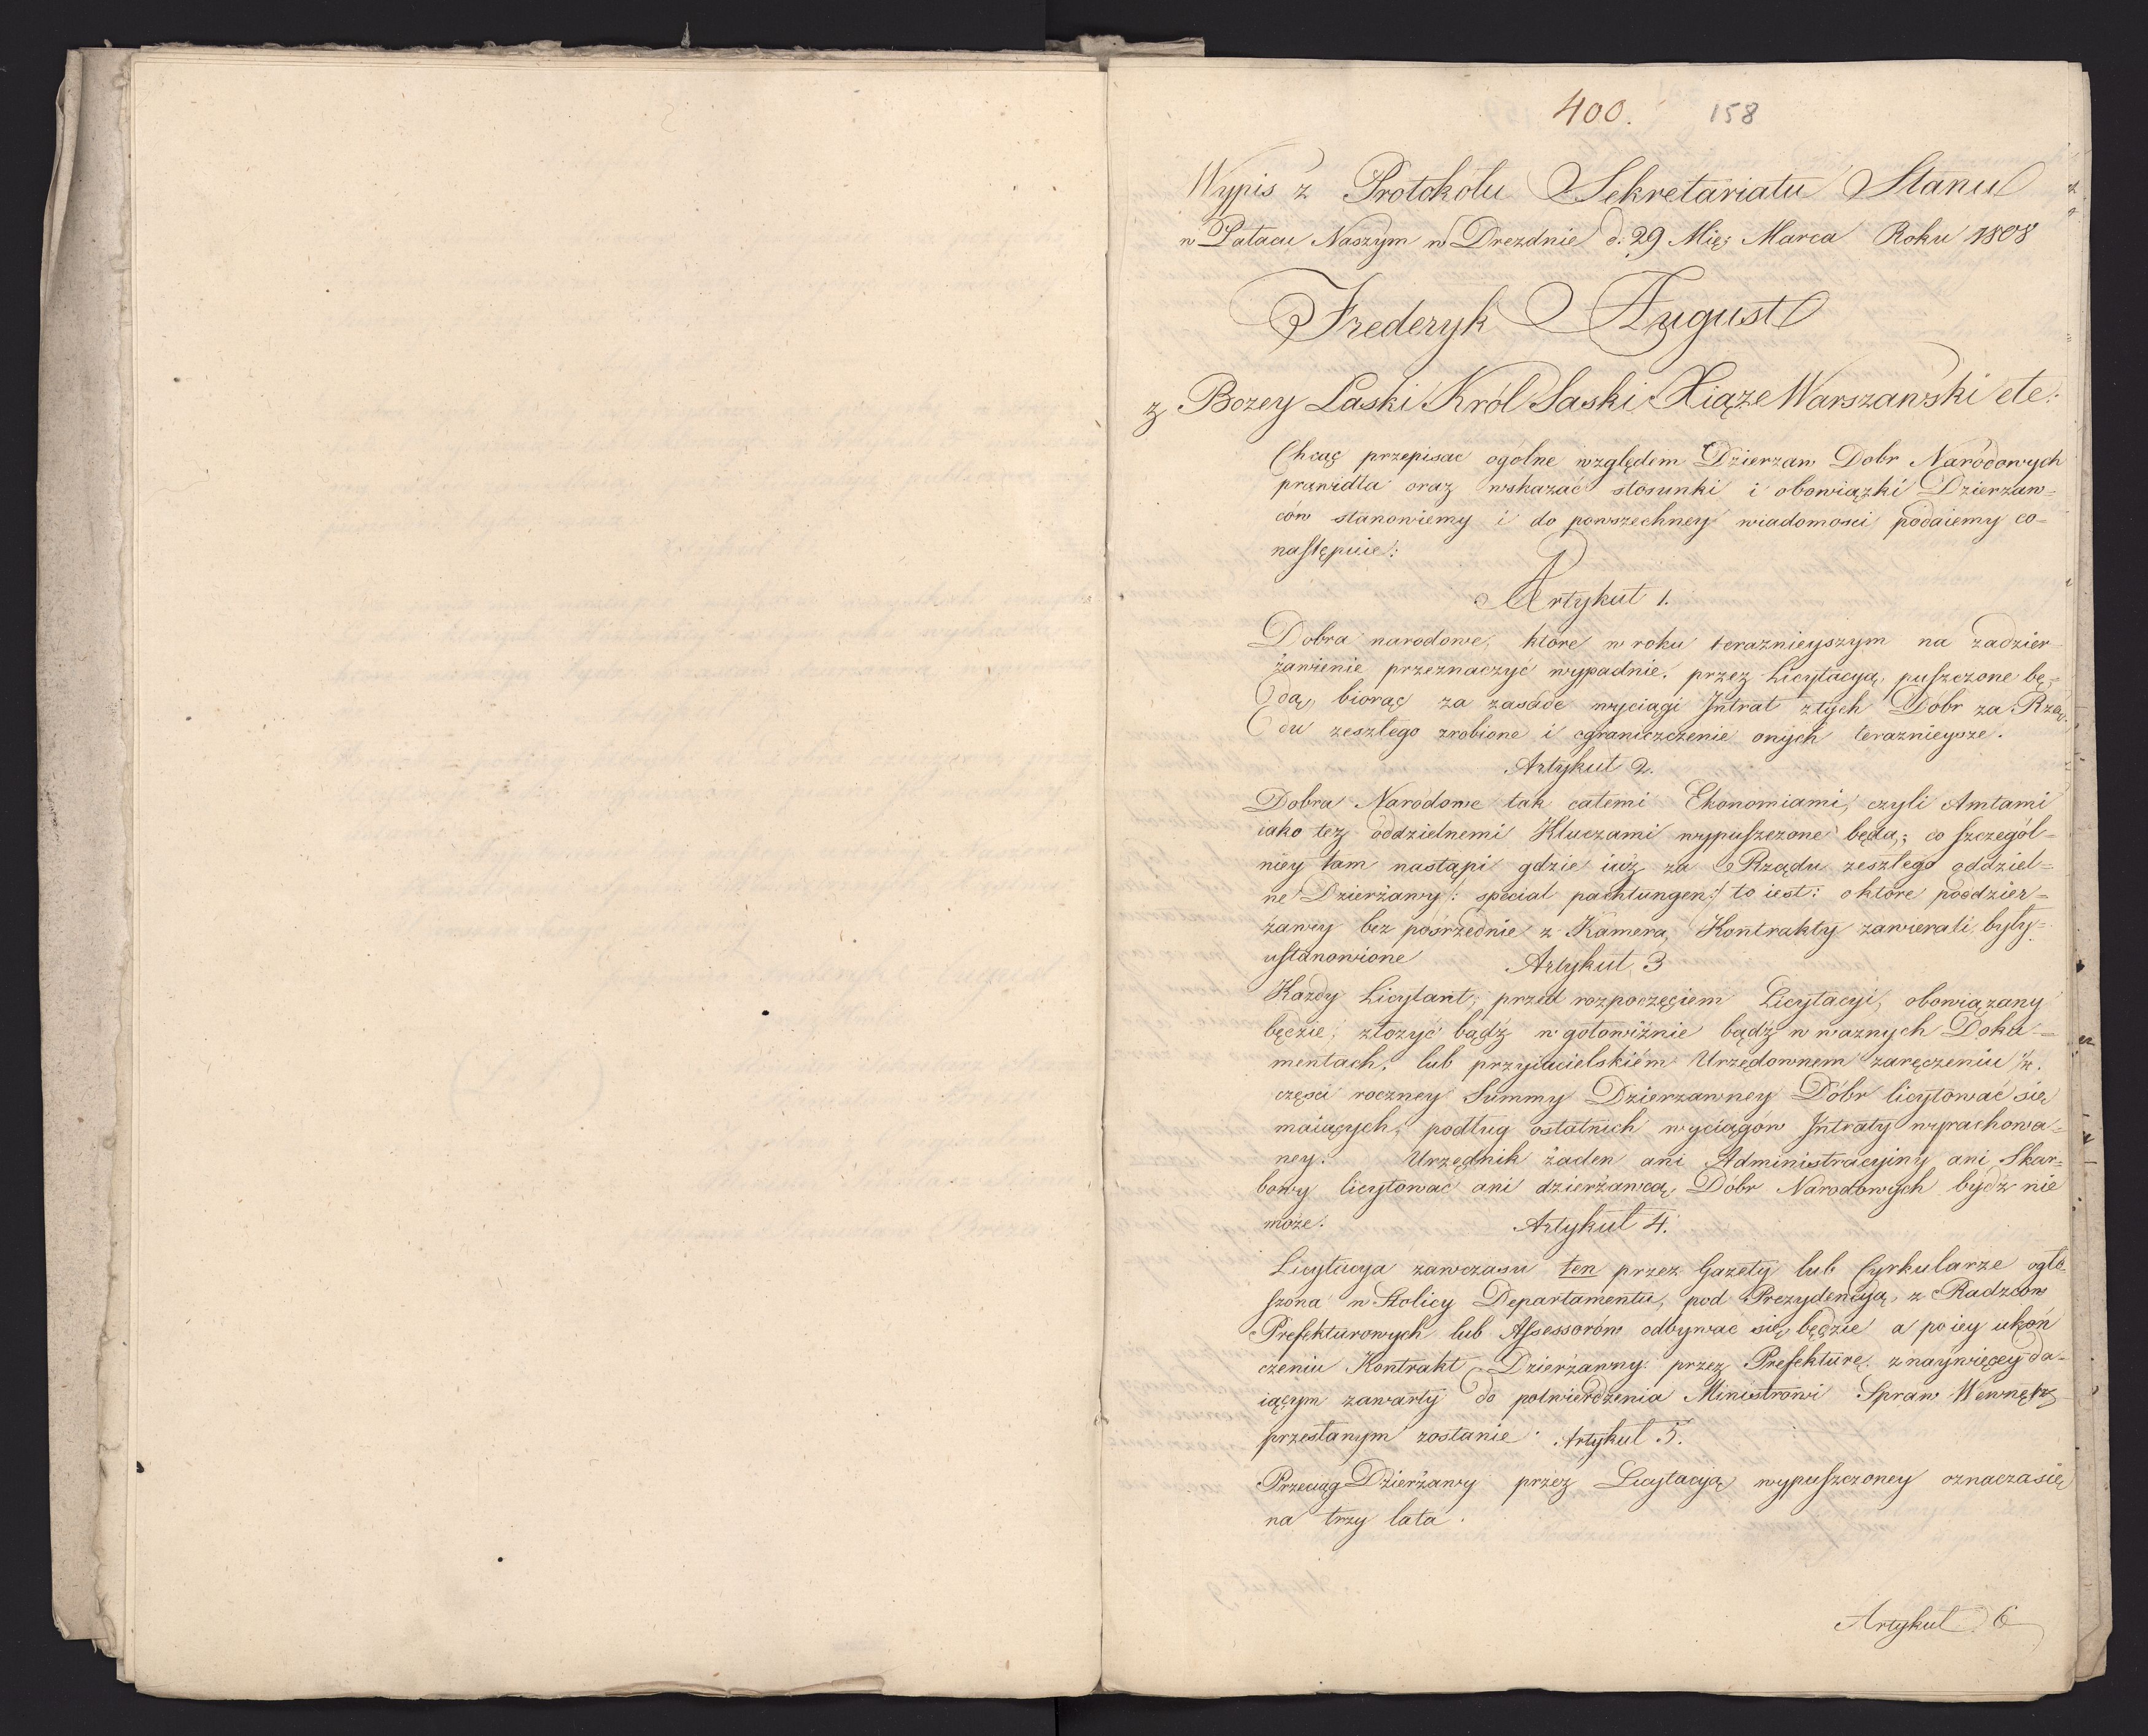 400. 158
Wypis z Protokołu Sekretariatu Stanu
w Pałacu Naszym w Dreznie d: 29 Mię: Marca Roku 1808
Frederyk August
z Bożey Łaski Król Saski Xiąże Warszawski etc:
Chcąc przepisac ogólne względem Dzierzaw Dobr Narodowych
prawidła oraz wskazać stosunki i obowiązki Dzierzaw=
ców stanowiemy i do powszechney wiadomosci podaiemy co=
następuie:
Artykuł 1.
Dobra narodowe, które w roku teraznieyszym na zadzier=
żawienie przeznaczyć wypadnie, przez Licytacyą puszczone bę=
dą, biorąc za zasadę wyciągi Intrat z tych Dóbr za Rzą=
du zeszłego zrobione i ograniczczenie onych teraznieysze.
Artykuł 2.
Dobra Narodowe tak całemi Ekonomiami, czyli Amtami
iako tez oddzielnemi Kluczami wypuszczone będą; co szczegól=
niey tam nastąpi gdzie iuż za Rządu zeszłego oddziel=
ne Dzierżawy /: special pachtungen :/ to iest: o które poddzier=
żawcy bez pośrzednie z Kamerą Kontrakty zawierali, były=
ustanowione Artykuł 3
Kazdy Licytant, przed rozpoczęciem Licytacyi, obowiązany
będzie, złożyć bądź w gotowiźnie bądź w waznych Doku=
mentach, lub przyiacielskiém Urzędownem zaręczeniu
częsci roczney Summy Dzierzawney Dóbr licytować się
maiących, podług ostatnich wyciągów Intraty wyrachowa=
ney. Urzędnik żaden ani Administracyiny ani Skar=
bowy licytowac ani dzierżawcą Dóbr Narodowych bydź nie
może. Artykuł 4.
Licytacya zawczasu ten przez Gazety lub Cyrkularze ogło=
szona w Stolicy Departamentu, pod Prezydencyą z Radzcow
Prefekturowych lub Assessorów odbywac się będzie a po iey ukoń
czeniu Kontrakt Dzierżawny przez Prefekturę z naywięcey da=
iącym zawarty do potwierdzenia Ministrowi Spraw Wewnętrz
przesłanym zostanie. Artykuł 5.
Przeciąg Dzierżawy przez Licytacyą wypuszczoney oznacza się
na trzy lata.
Artykuł 6